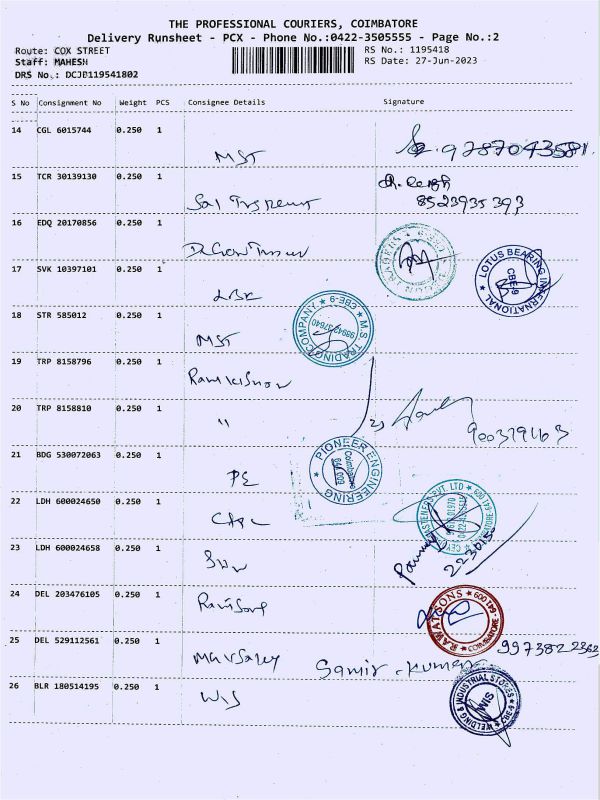 THE PROFESSIONAL COURIERS, COIMBATORE
Delivery Runsheet - PCX - Phone No.:0422-3505555 - Page No.:2
Route: COX STREET
RS No.: 1195418
Staff: MAHESH
RS Date: 27-Jun-2023
DRS No.: DCJB119541802
S No Consignment No Weight PCS Consignee Details Signature
14 CGL 6015744 0.250 1
MST
9787043581
15 TCR 30139130 0.250 1
8523935393
16 EDQ 20170856 0.250 1
17 SVK 10397101 0.250 1
LBE
LOTUS BEARING INTERNATIONAL
CBE-9
18 STR 585012 0.250 1
MST
M.S. TRADING COMPANY ★ CBE-9 ★
9894237640
19 TRP 8158796 0.250 1
20 TRP 8158810 0.250 1
"
21 BDG 530072063 0.250 1
PE
PIONEER ENGINEERING
Coimbatore
22 LDH 600024650 0.250 1
23 LDH 600024658 0.250 1
24 DEL 203476105 0.250 1
RAWATSONS
COIMBATORE - 641 009
25 DEL 529112561 0.250 1
Samir. Kumar
26 BLR 180514195 0.250 1
WIS
WELDING & INDUSTRIAL STORES
WIS
CBE-9